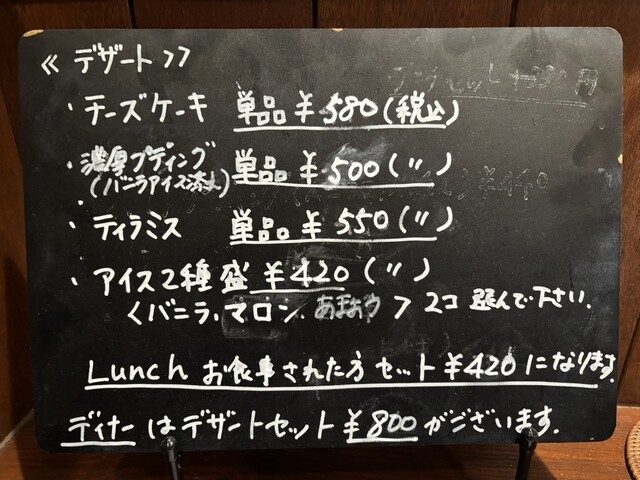 ≪ デザート >>
・チーズケーキ 単品 ¥580(税込)
・濃厚プディング 単品 ¥500(〃)
(バニラアイス済み)
・ティラミス 単品 ¥550(〃)
・アイス2種盛 ¥420(〃)
<バニラ、マロン、> 2コ 選んで下さい.
Lunch お食事された方 セット ¥420になります.
ディナー はデザートセット ¥800 がございます.